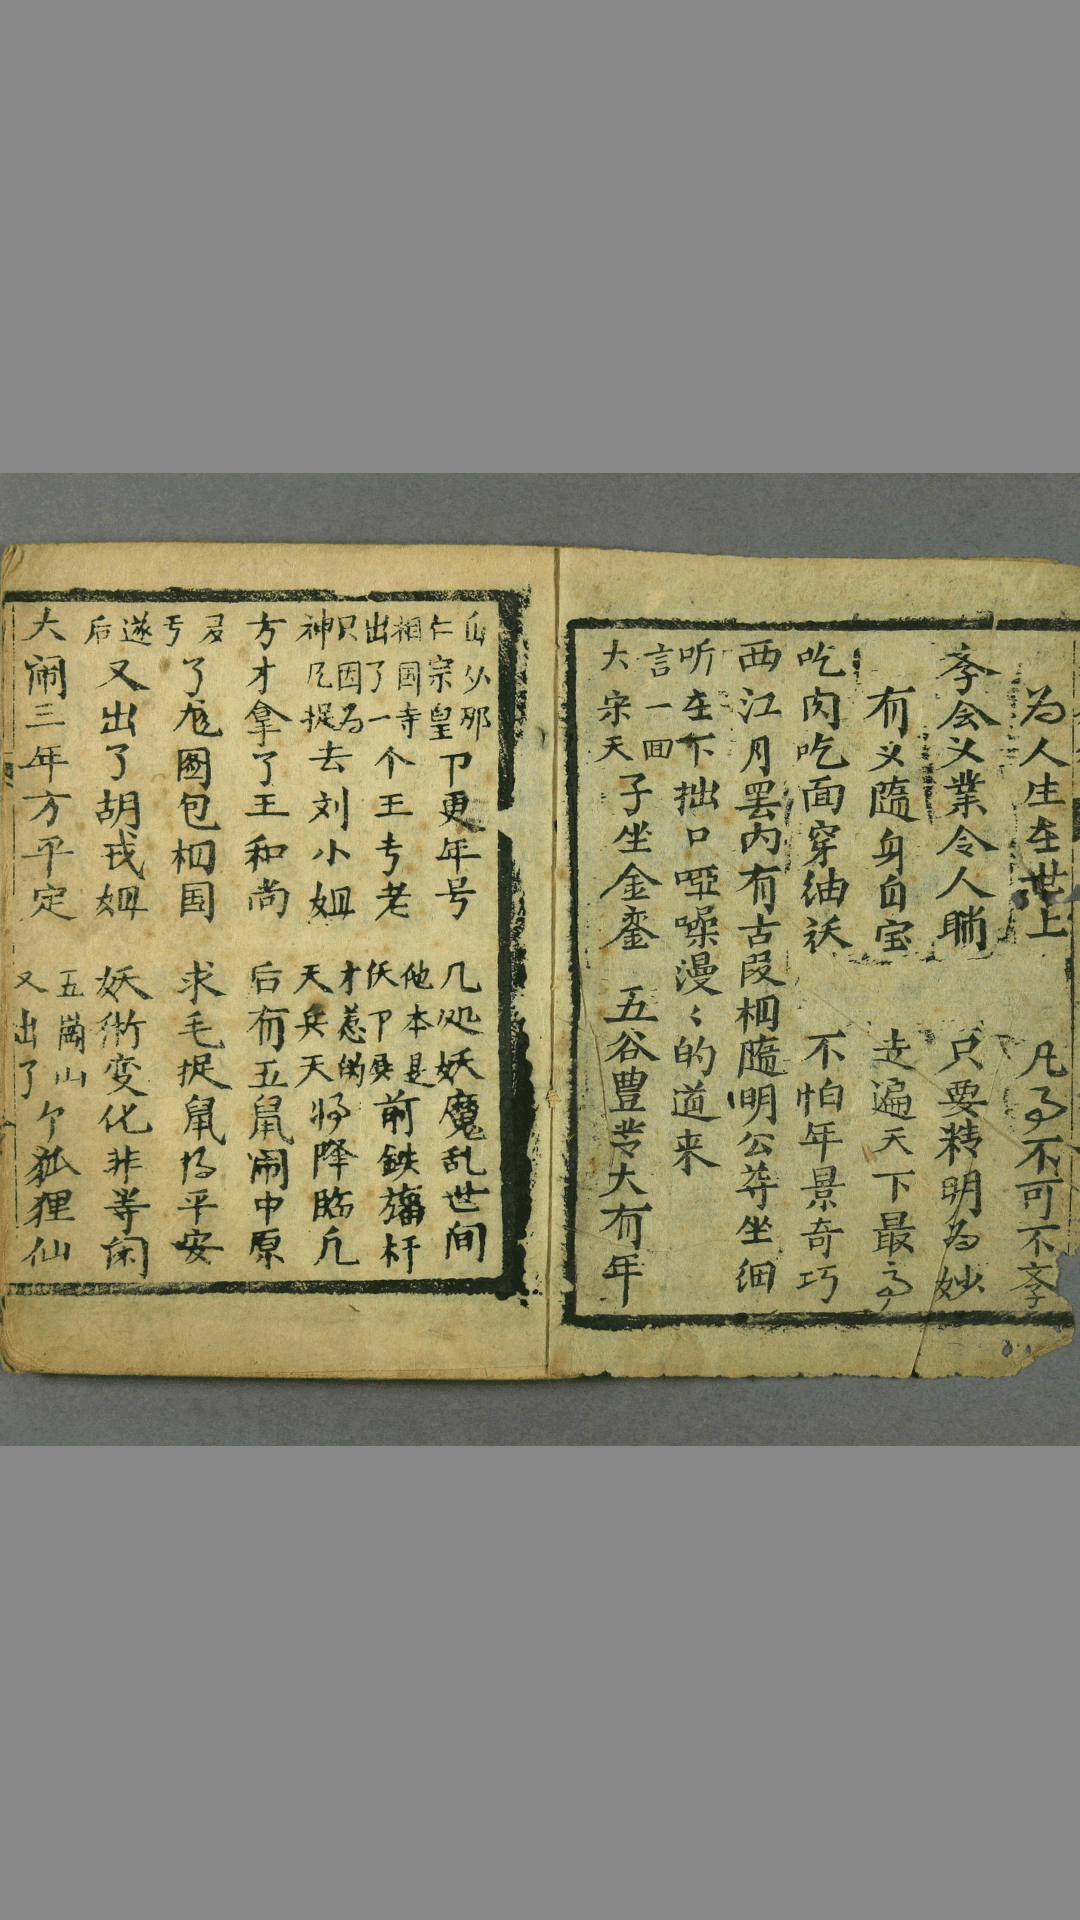 为人生在世上 凡事不可不斈
斈会乂業令人聽 只要精明为妙
有乂随身自宝 走遍天下最高
吃肉吃面穿紬袄 不怕年景奇巧
西江月罢内有古段相随明公荐坐细
听在下拙口哑嗓漫〻的道来
言一回
大宋天子坐金銮 五谷豊登大有年
仁宗皇卩更年号 几处妖魔乱世间
相国寺出了一个王道老 他本是前鉄旛杆
只因为捉去刘小姐 才惹的天兵天将降臨凡
方才拿了王和尚 后有五鼠闹中原
了包相国 求毛捉鼠得平安
遂后又出了胡戎姐 妖術变化非等闲
大闹三年方平定 五崗山又出了个狐狸仙